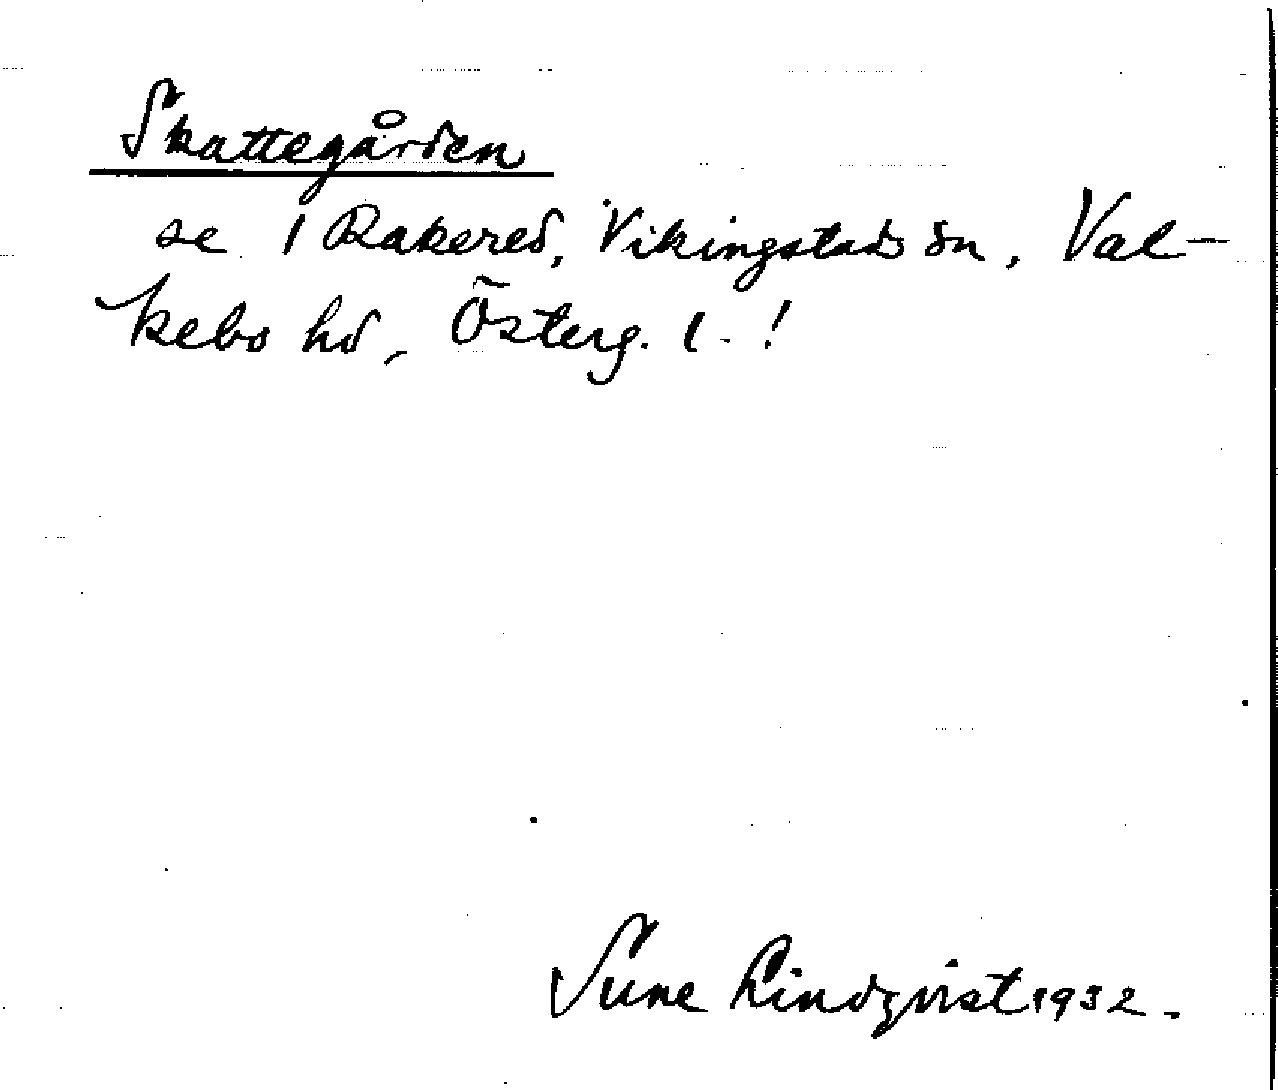 Skattegården
se 1 Rakered, Vikingstads sn, Val-
kebo hd, Österg. l. !
Sune Lindqvist 1932.